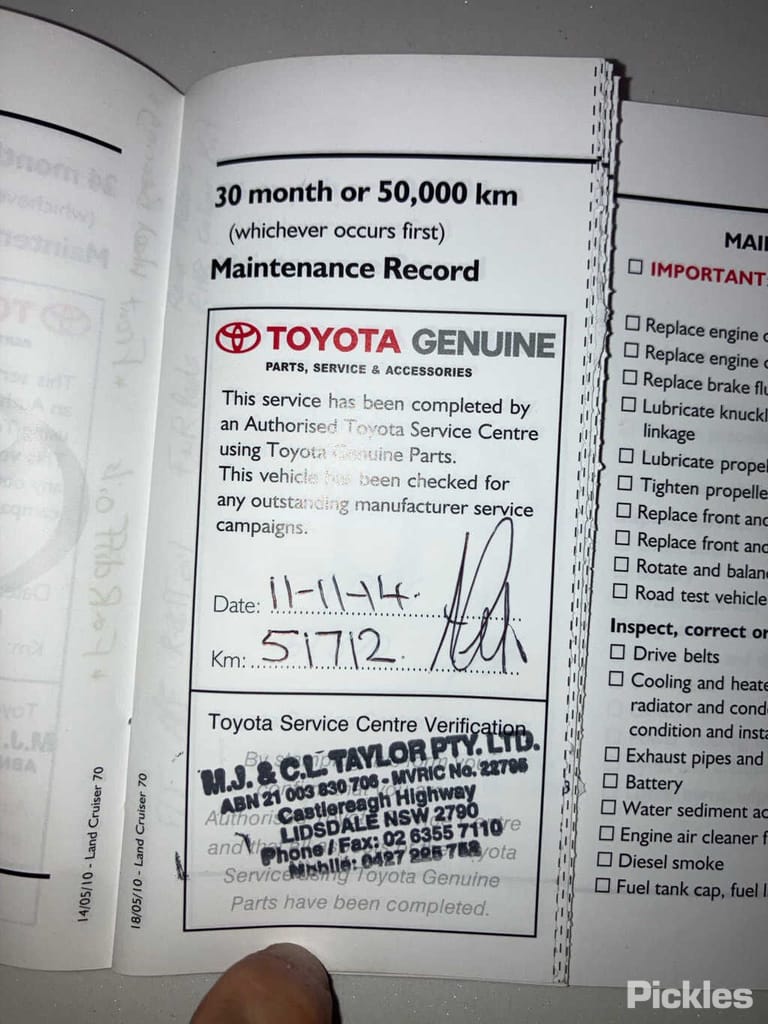 30 month or 50,000 km
(whichever occurs first)
Maintenance Record
TOYOTA GENUINE
PARTS, SERVICE & ACCESSORIES
This service has been completed by
an Authorised Toyota Service Centre
using Toyota Genuine Parts.
This vehicle has been checked for
any outstanding manufacturer service
campaigns.
Date: 11-11-14.
Km: 51712.
Toyota Service Centre Verification
M.J. & C.L. TAYLOR PTY. LTD.
ABN 21 003 830 708 - MVRIC No. 22795
Castlereagh Highway
LIDSDALE NSW 2790
Phone / Fax: 02 6355 7110
Mobile: 0427
and
Service using Toyota Genuine
Parts have been completed.
14/05/10 - Land Cruiser 70
18/05/10 - Land Cruiser 70
MAI
IMPORTANT:
Replace engine
Replace engine
Replace brake
Lubricate
linkage
Lubricate
Tighten
Replace front and
Replace front and
Rotate and
Road test vehicle
Inspect, correct or
Drive belts
Cooling and
radiator and
condition and
Exhaust pipes and
Battery
Water sediment
Engine air cleaner
Diesel smoke
Fuel tank cap, fuel
Pickles